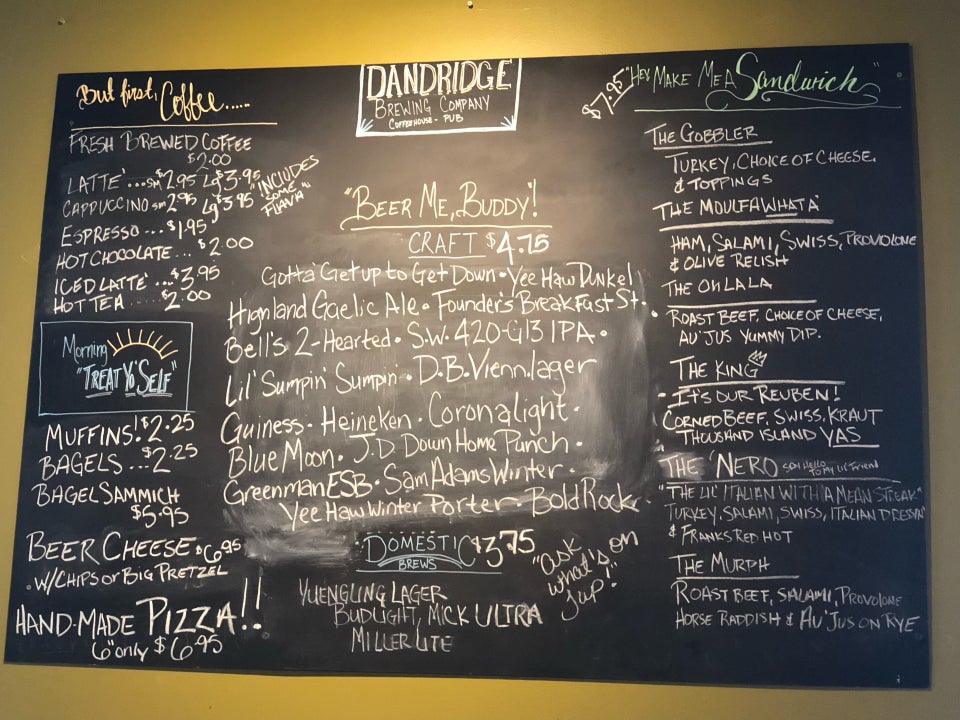 But first, Coffee.....
FRESH BREWED COFFEE
$2.00
LATTE'...sm $2.95 Lg $3.95
CAPPUCCINO sm $2.95 Lg $3.95
"INCLUDES
SOME
FLAVA"
ESPRESSO...$1.95
HOT CHOCOLATE... $2.00
ICED LATTE'...$3.95
HOT TEA.....$2.00
Morning
"TREAT YO' SELF"
MUFFINS! $2.25
BAGELS...$2.25
BAGEL SAMMICH
$5.95
BEER CHEESE $6.95
W/CHIPS OR BIG PRETZEL
HAND-MADE PIZZA!!
6" only $6.95
DANDRIDGE
BREWING COMPANY
COFFEEHOUSE - PUB
"BEER ME, BUDDY"!
CRAFT $4.75
Gotta Get up to Get Down • Yee Haw Dunkel
Highland Gaelic Ale • Founder's Breakfast St.
Bell's 2-Hearted • S.W. 420-G13 IPA •
Lil' Sumpin' Sumpin' • D.B. Vienn. lager
Guiness • Heineken • Corona Light •
Blue Moon • J.D Down Home Punch •
Greenman ESB • Sam Adams Winter •
Yee Haw Winter Porter • Bold Rock
DOMESTIC $3.75
BREWS
YUENGLING LAGER
BUDLIGHT, MICK ULTRA
MILLER LITE
"ask
what's on
tap!"
$7.95 "HEY MAKE ME A Sandwich"
THE GOBBLER
TURKEY, CHOICE OF CHEESE,
& TOPPINGS
THE MOULFAWHATA'
HAM, SALAMI, SWISS, PROVOLONE
& OLIVE RELISH
THE OH LA LA
ROAST BEEF, CHOICE OF CHEESE,
AU' JUS YUMMY DIP.
THE KING
• IT'S OUR REUBEN!
CORNED BEEF, SWISS, KRAUT
THOUSAND ISLAND YAS
THE 'NERO SAY HELLO TO MY LIL' FRIEND
"THE LIL' ITALIAN WITH A MEAN STREAK"
TURKEY, SALAMI, SWISS, ITALIAN DRESSIN'
& FRANKS RED HOT
THE MURPH
ROAST BEEF, SALAMI, PROVOLONE
HORSE RADDISH & AU' JUS ON RYE